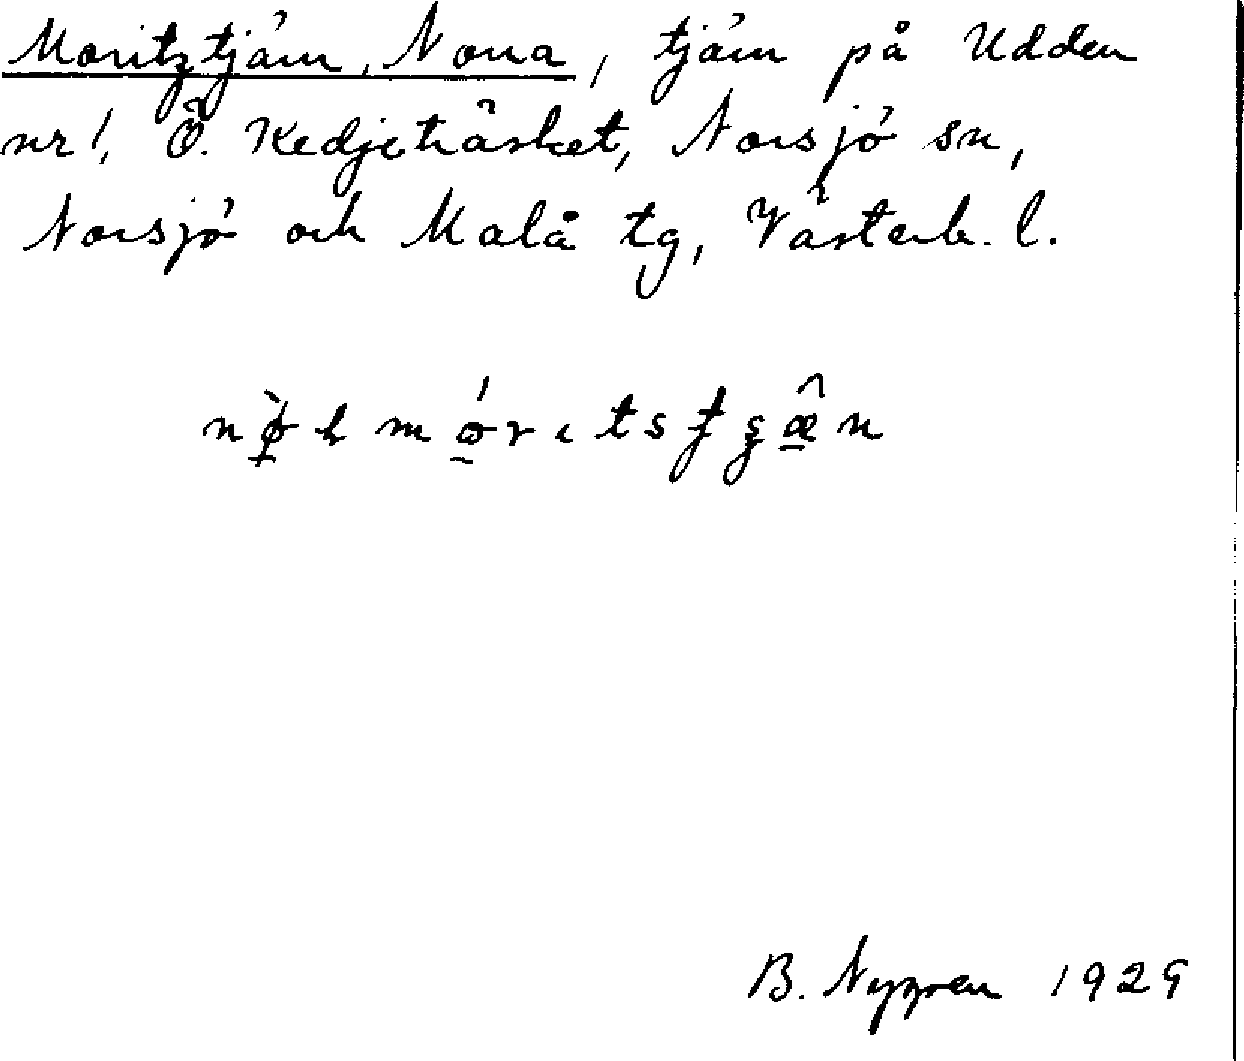 Moritztjärn, Norra, tjärn på Udden
nr 1, Ö. Kedjeträsket, Norsjö sn,
Norsjö och Malå tg, Västerb. l.
B. Nygren 1929